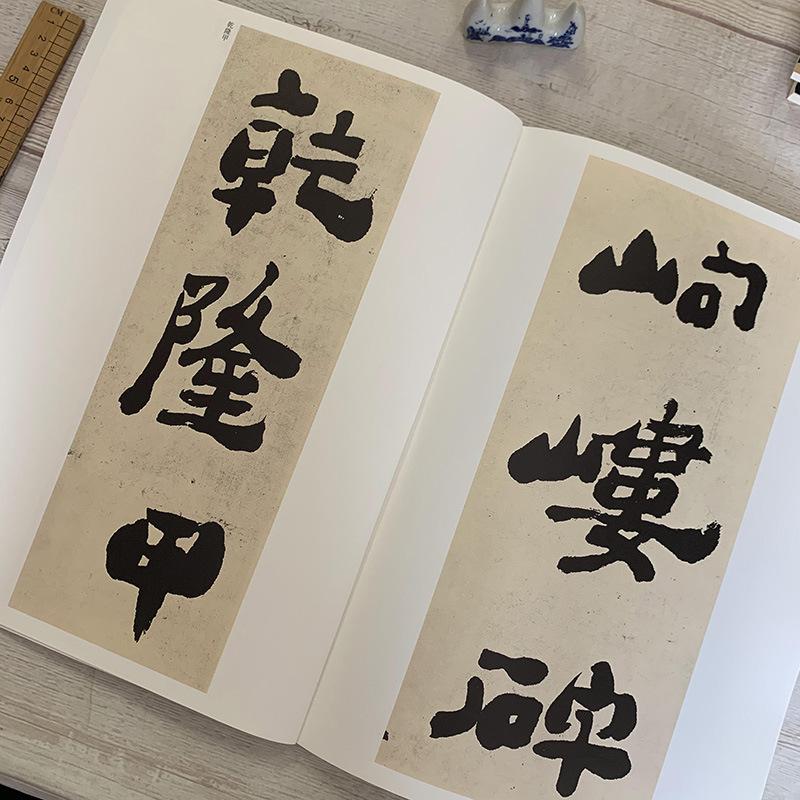 岣嶁碑
乾隆甲
乾隆甲
CM 1 2 3 4 5 6 7